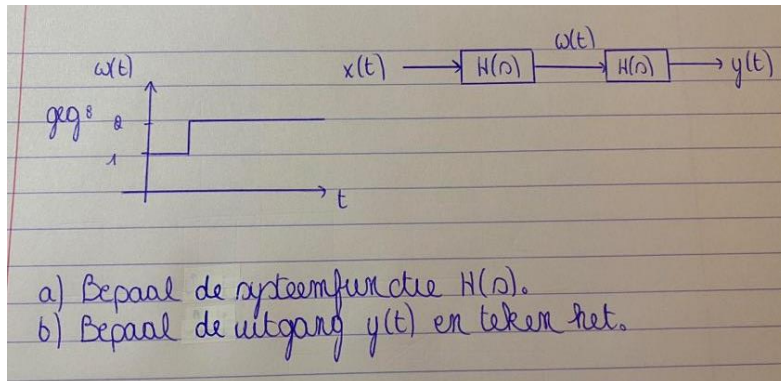 ω(t)
x(t) H(s) ω(t) H(s) y(t)
geg:
2
1
t
a) Bepaal de systeemfunctie H(s).
b) Bepaal de uitgang y(t) en teken het.